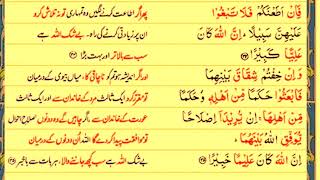 فَاِنْ اَطَعْنَكُمْ فَلَا تَبْغُوْا
عَلَيْهِنَّ سَبِيْلًا ؕ اِنَّ اللّٰهَ كَانَ
عَلِيًّا كَبِيْرًا ﴿۳۴﴾
وَاِنْ خِفْتُمْ شِقَاقَ بَيْنِهِمَا
فَابْعَثُوْا حَكَمًا مِّنْ اَهْلِهٖ وَحَكَمًا
مِّنْ اَهْلِهَا ۚ اِنْ يُّرِيْدَاۤ اِصْلَاحًا
يُّوَفِّقِ اللّٰهُ بَيْنَهُمَا ؕ
اِنَّ اللّٰهَ كَانَ عَلِيْمًا خَبِيْرًا ﴿۳۵﴾
پھر اگر اطاعت کرنے لگیں وہ تمہاری تو نہ تلاش کرو
ان پر زیادتی کرنے کی راہ۔ بے شک اللہ ہے
سب سے بالاتر اور بہت بڑا ﴿۳۴﴾
اور اگر اندیشہ ہو تم کو ناچاقی کا، میاں بیوی کے درمیان
تو مقرر کرو ایک ثالث مرد کے خاندان سے اور ایک ثالث
عورت کے خاندان سے۔ اگر چاہیں گے وہ دونوں اصلاح احوال
تو موافقت پیدا کردے گا اللہ ان دونوں کے درمیان
بے شک اللہ ہے سب کچھ جاننے والا، ہر بات سے باخبر ﴿۳۵﴾